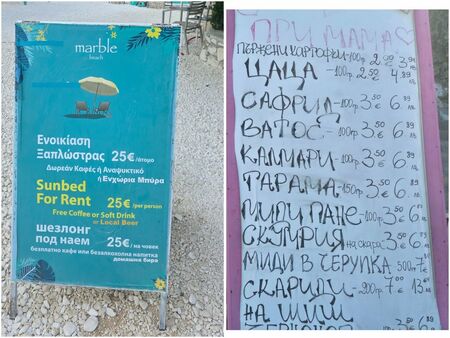 marble
beach
Ενοικίαση
Ξαπλώστρας 25€/άτομο
Δωρεάν Καφές ή Αναψυκτικό
ή Εγχώρια Μπύρα
Sunbed
For Rent 25€/per person
Free Coffee or Soft Drink
or Local Beer
шезлонг
под наем 25€/на човек
безплатно кафе или безалкохолна напитка
домашна бира
ПРИ МАМА
ПЪРЖЕНИ КАРТОФКИ-100гр.
ЦАЦА -100гр. 2.50 4.89 лв.
САФРИД -100гр. 3.50 6.89
ВАТОС -100гр. 3.50 6.89
КАЛМАРИ -100гр. 3.50 6.89
ТАРАМА 3.50 6.89
МИДИ ПАНЕ 100гр. 3.50 6.89
СКУМРИЯ на скара 3.50 6.89
МИДИ В ЧЕРУПКА 500гр.
СКАРИДИ -200гр. 7.00 13.69
НА ШИШ